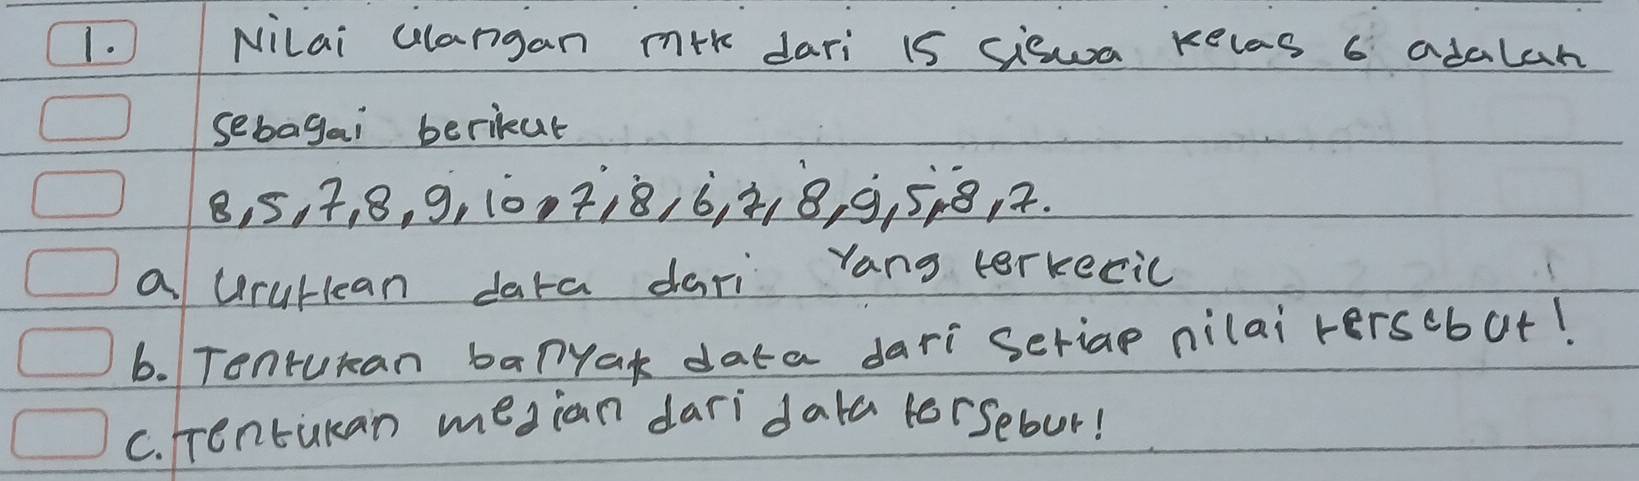 1. Nilai ulangan mtk dari 15 siswa kelas 6 adalah
sebagai berikut
8, 5, 7, 8, 9, 10, 7, 8, 6, 7, 8, 9, 5, 8, 7.
a. Urutkan data dari yang terkecil
b. Tentukan banyak data dari setiap nilai tersebut!
c. Tentukan median dari data tersebut!